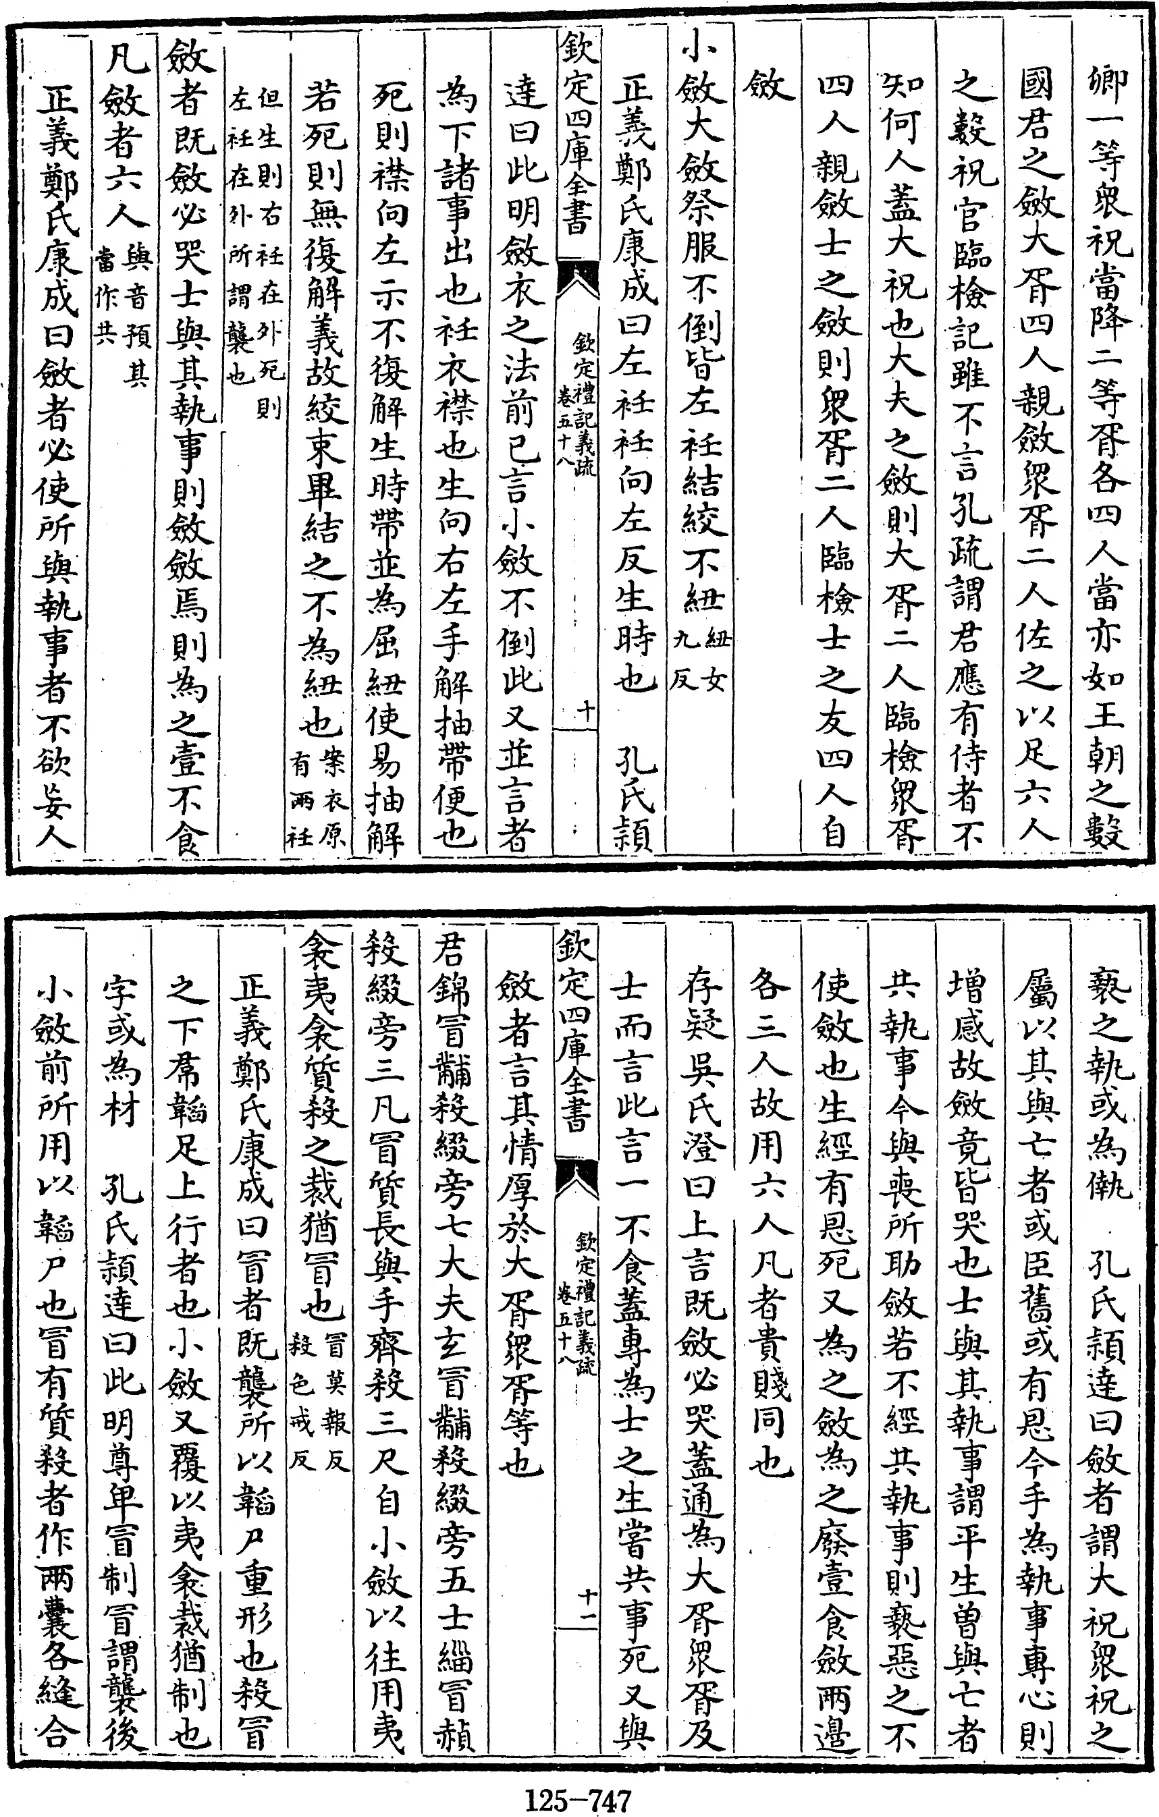 卿一等衆祝當降二等胥各四人當亦如王朝之數
國君之斂大胥四人親斂衆胥二人佐之以足六人
之數祝官臨檢記雖不言孔疏謂君應有侍者不
知何人蓋大祝也大夫之斂則大胥二人臨檢衆胥
四人親斂士之斂則衆胥二人臨檢士之友四人自
斂
小斂大斂祭服不倒皆左衽結絞不紐紐女九反
正義鄭氏康成曰左衽衽向左反生時也　孔氏穎
欽定四庫全書　欽定禮記義疏卷五十八　十
達曰此明斂衣之法前已言小斂不倒此又並言者
為下諸事出也衽衣襟也生向右左手解抽帶便也
死則襟向左示不復解生時帶並為屈紐使易抽解
若死則無復解義故絞束畢結之不為紐也案衣原有兩衽
但生則右衽在外死則左衽在外所謂襲也
斂者既斂必哭士與其執事則斂斂焉則為之壹不食
凡斂者六人與音預其當作共
正義鄭氏康成曰斂者必使所與執事者不欲妄人
褻之執或為㙯　孔氏穎達曰斂者謂大祝衆祝之
屬以其與亡者或臣舊或有恩今手為執事專心則
增感故斂竟皆哭也士與其執事謂平生曾與亡者
共執事今與喪所助斂若不經共執事則褻惡之不
使斂也生經有恩死又為之斂為之廢壹食斂兩邊
各三人故用六人凡者貴賤同也
存疑吳氏澄曰上言既斂必哭蓋通為大胥衆胥及
士而言此言一不食蓋專為士之生嘗共事死又與
欽定四庫全書　欽定禮記義疏卷五十八　十一
斂者言其情厚於大胥衆胥等也
君錦冒黼殺綴旁七大夫玄冒黼殺綴旁五士緇冒赬
殺綴旁三凡冒質長與手齊殺三尺自小斂以往用夷
衾夷衾質殺之裁猶冒也冒莫報反殺色戒反
正義鄭氏康成曰冒者既襲所以韜尸重形也殺冒
之下帬韜足上行者也小斂又覆以夷衾裁猶制也
字或為材　孔氏穎達曰此明尊卑冒制冒謂襲後
小斂前所用以韜尸也冒有質殺者作兩囊各縫合
125-747